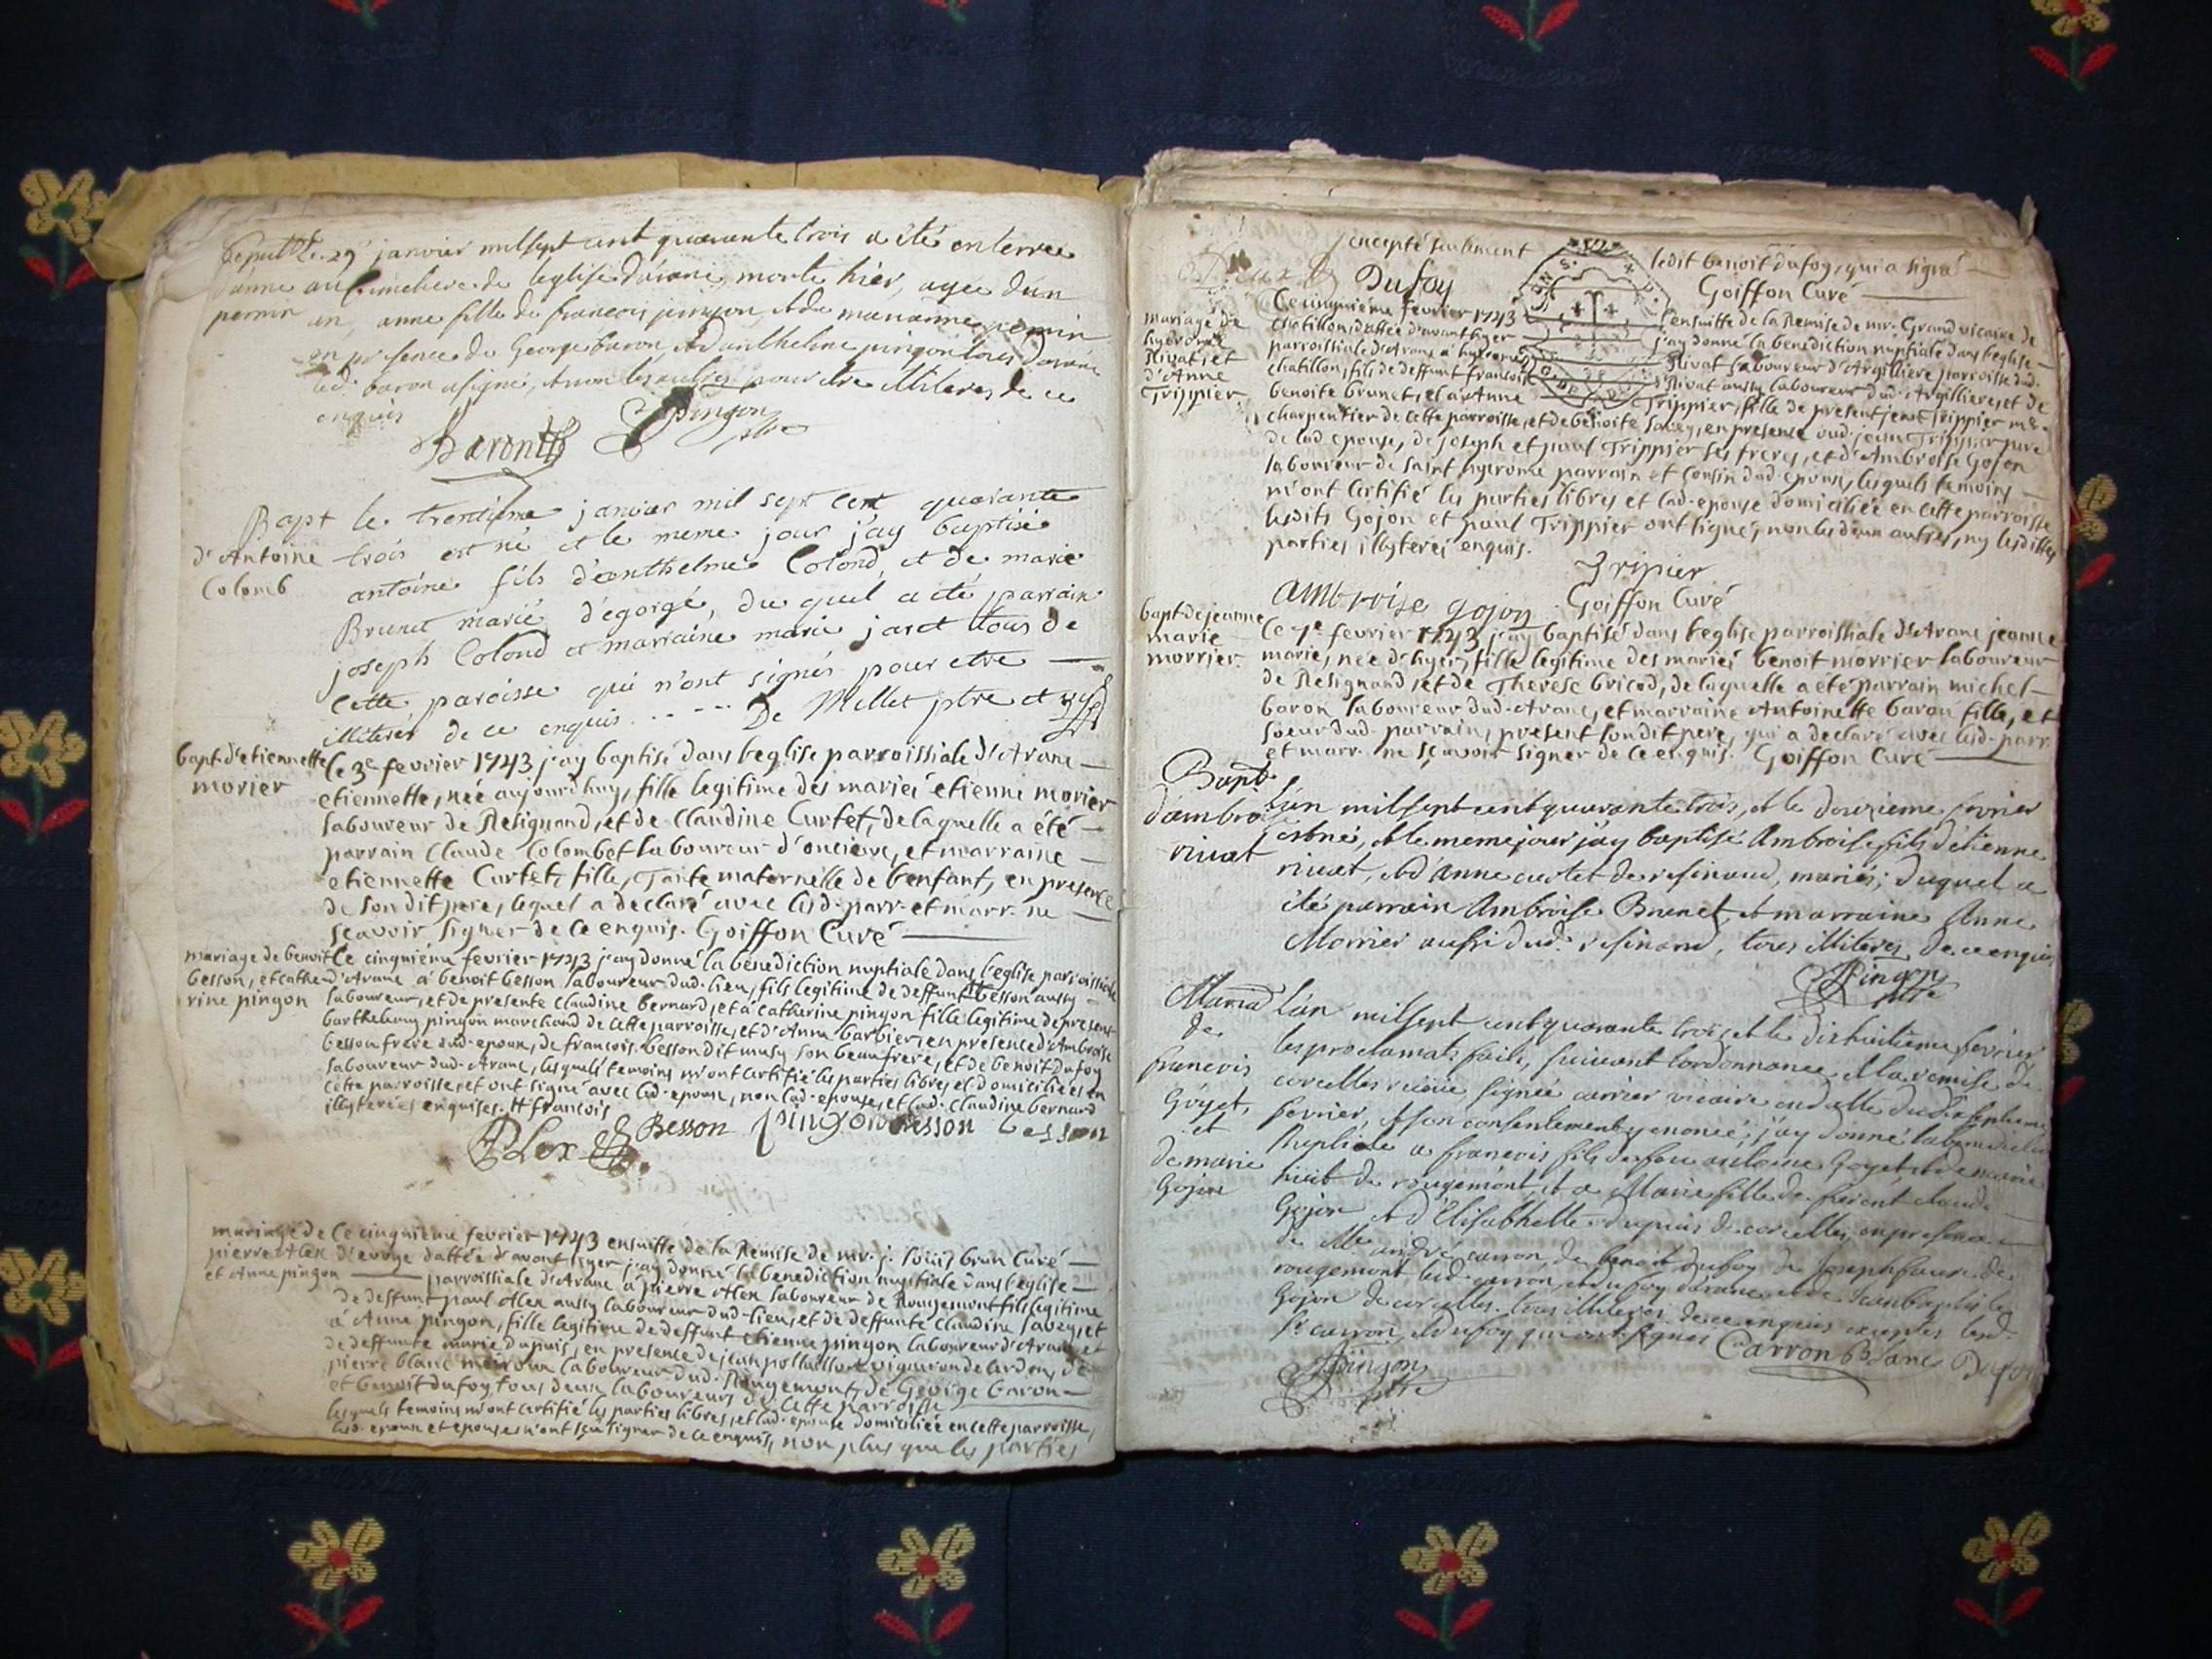 Sepult.re Le 29 janvier mil sept cent quarante trois a été enterrée
d'anne au Cimetiere de leglise d'arane, morte hier, agée d'un
pernin an, anne fille de francois et de marianne pernin
en presence de George baron, et d'anthelme pingon tous d'arane
led. baron a signé, et non les autres pour etre illiteres de ce
enquis
Baron pingon ptre
Bapt le trentième janvier mil sept cent quarante
d'Antoine trois est né et le meme jour j'ay baptisé
Colomb antoine fils d'anthelme Colond et de marie
Brunet mariés d'egorge, du quel a été parrain
joseph Colond et marraine marie jaret tous de
cette paroisse qui n'ont signés pour etre
illiteres de ce enquis De Millet ptre et
bapt. d'etiennette Ce 3e fevrier 1743 j'ay baptisé dans l'eglise parroissiale d'Arane
morier etiennette, née aujourdhuy, fille legitime des mariés etienne morier
laboureur de Resignand, et de Claudine Curtet, de laquelle a été
parrain Claude Colombet laboureur d'oncieux, et marraine
etiennette Curtet, fille, Tante maternelle de l'enfant, en presence
de son dit pere, lequel a declaré avec lesd. parr. et marr. ne
sçavoir signer de ce enquis. Goiffon Curé
mariage de benoit Ce cinquiéme fevrier 1743 j'ay donné la benediction nuptiale dans l'eglise parroissiale
besson, et cathe- d'Arane à benoit besson laboureur dud. lieu, fils legitime de deffunt # besson aussy
rine pingon laboureur, et de presente claudine bernard, et à catherine pingon fille legitime de present
barthelemy pingon marchand de cette parroisse, et d'Anne barbier, en presence d'Ambroise
besson frere dud. epoux, de francois besson dit musy son beaufrere, et de benoit dufoy
laboureur dud. Arane, lesquels temoins m'ont certifié les parties libres, et domiciliées en
cette parroisse, et ont signé avec led. epoux, non lad. epouse, et lad. claudine bernard
illyterées enquises. # francois
Besson pingon besson besson
mariage de Ce cinquiéme fevrier 1743 ensuitte de la Remise de mr. j. louis brun Curé
pierre Alex d'evoge dattée d'avant hyer j'ay donné la benediction nuptiale dans l'eglise
et Anne pingon parroissiale d'Arane à pierre Alex laboureur de Rougemont fils legitime
de deffunt paul Alex aussy laboureur dud. lieu, et de deffunte claudine savey, et
à Anne pingon, fille legitime de deffunt etienne pingon laboureur d'Arane, et
de deffunte marie dupuis, en presence de jean vigneron de cerdon, de
pierre blanc laboureur dud. Rougemont, de George baron
et benoit dufoy tous deux laboureurs de cette parroisse
lesquels temoins m'ont certifié les parties libres, et lad. epouse domiciliée en cette parroisse,
led. epoux et epouse n'ont sçu signer de ce enquis, non plus que les parties
excepté seulement ledit benoit dufoy, qui a signé
Dufoy Goiffon Curé
mariage de Ce cinquiéme fevrier 1743 ensuitte de la Remise de mr. Grand vicaire de
hyerome chatillon, dattée d'avant hyer j'ay donné la benediction nuptiale dans l'eglise
Rivat, et parroissiale d'Arane à hyerome Rivat laboureur d'Argilliere parroisse dud.
d'Anne chatillon, fils de deffunt francois Rivat aussy laboureur dud. Argilliere, et de
Trippier benoite brunet, et à Anne Trippier, fille de present jean Trippier me.
charpentier de cette parroisse, et de benoite savey, en presence dud. jean Trippier pere
de lad. epouse, de joseph et paul Trippier ses freres, et d'Ambroise Gojon
laboureur de saint hyerome parrain et cousin dud. epoux, lesquels temoins
m'ont certifié les parties libres et lad. epouse domiciliée en cette parroisse
lesdits Gojon et paul Trippier ont signé, non les deux autres, ny lesdittes
parties illyterés enquis.
Tripier
ambroise gojon Goiffon Curé
bapt. de jeanne Ce 7e fevrier 1743 j'ay baptisé dans l'eglise parroissiale d'Arane jeanne
marie marie, née d'hyer, fille legitime des mariés benoit morrier laboureur
morrier. de Resignand, et de Therese bricod, de laquelle a été parrain michel
baron laboureur dud. Arane, et marraine Antoinette baron fille, et
soeur dud. parrain, present sondit pere, qui a declaré avec lesd. parr.
et marr. ne sçavoir signer de ce enquis. Goiffon Curé
Bapt.
d'ambroise L'an mil sept cent quarante trois, et le douzieme fevrier
rivat est né, et le meme jour j'ay baptisé Ambroise, fils d'etienne
rivat, et d'anne curtet de resinand, mariés; duquel a
été parrain Ambroise Brunet, et marraine Anne
Morrier aussi dud. resinand, tous illiteres de ce enquis
Pingon ptre
Mariage L'an mil sept cent quarante trois et le dixhuitieme fevrier
de les proclamats faits, suivant l'ordonnance et la remise de
francois corcelles signée carrier vicaire en datte du dixseptieme
Goyet, fevrier, et son consentement y enoncé; j'ay donné la benediction
et Nuptiale a francois fils de feu antoine Goyet, et de marie
de marie de rougemont, et a Marie fille de present claude
Gojon Gojon et d'Elisabhette dupuis de corcelles, en presence
de Me andré carron, de benoit dufoy de joseph de
rougemont led. carron, et dufoy d'arane, et de jean baptiste
Gojon de corcelles. tous illiteres de ce enquis exceptés lesd.
Sr. carron, et dufoy qui ont signés Carron Blanc Dufoy
Pingon ptre